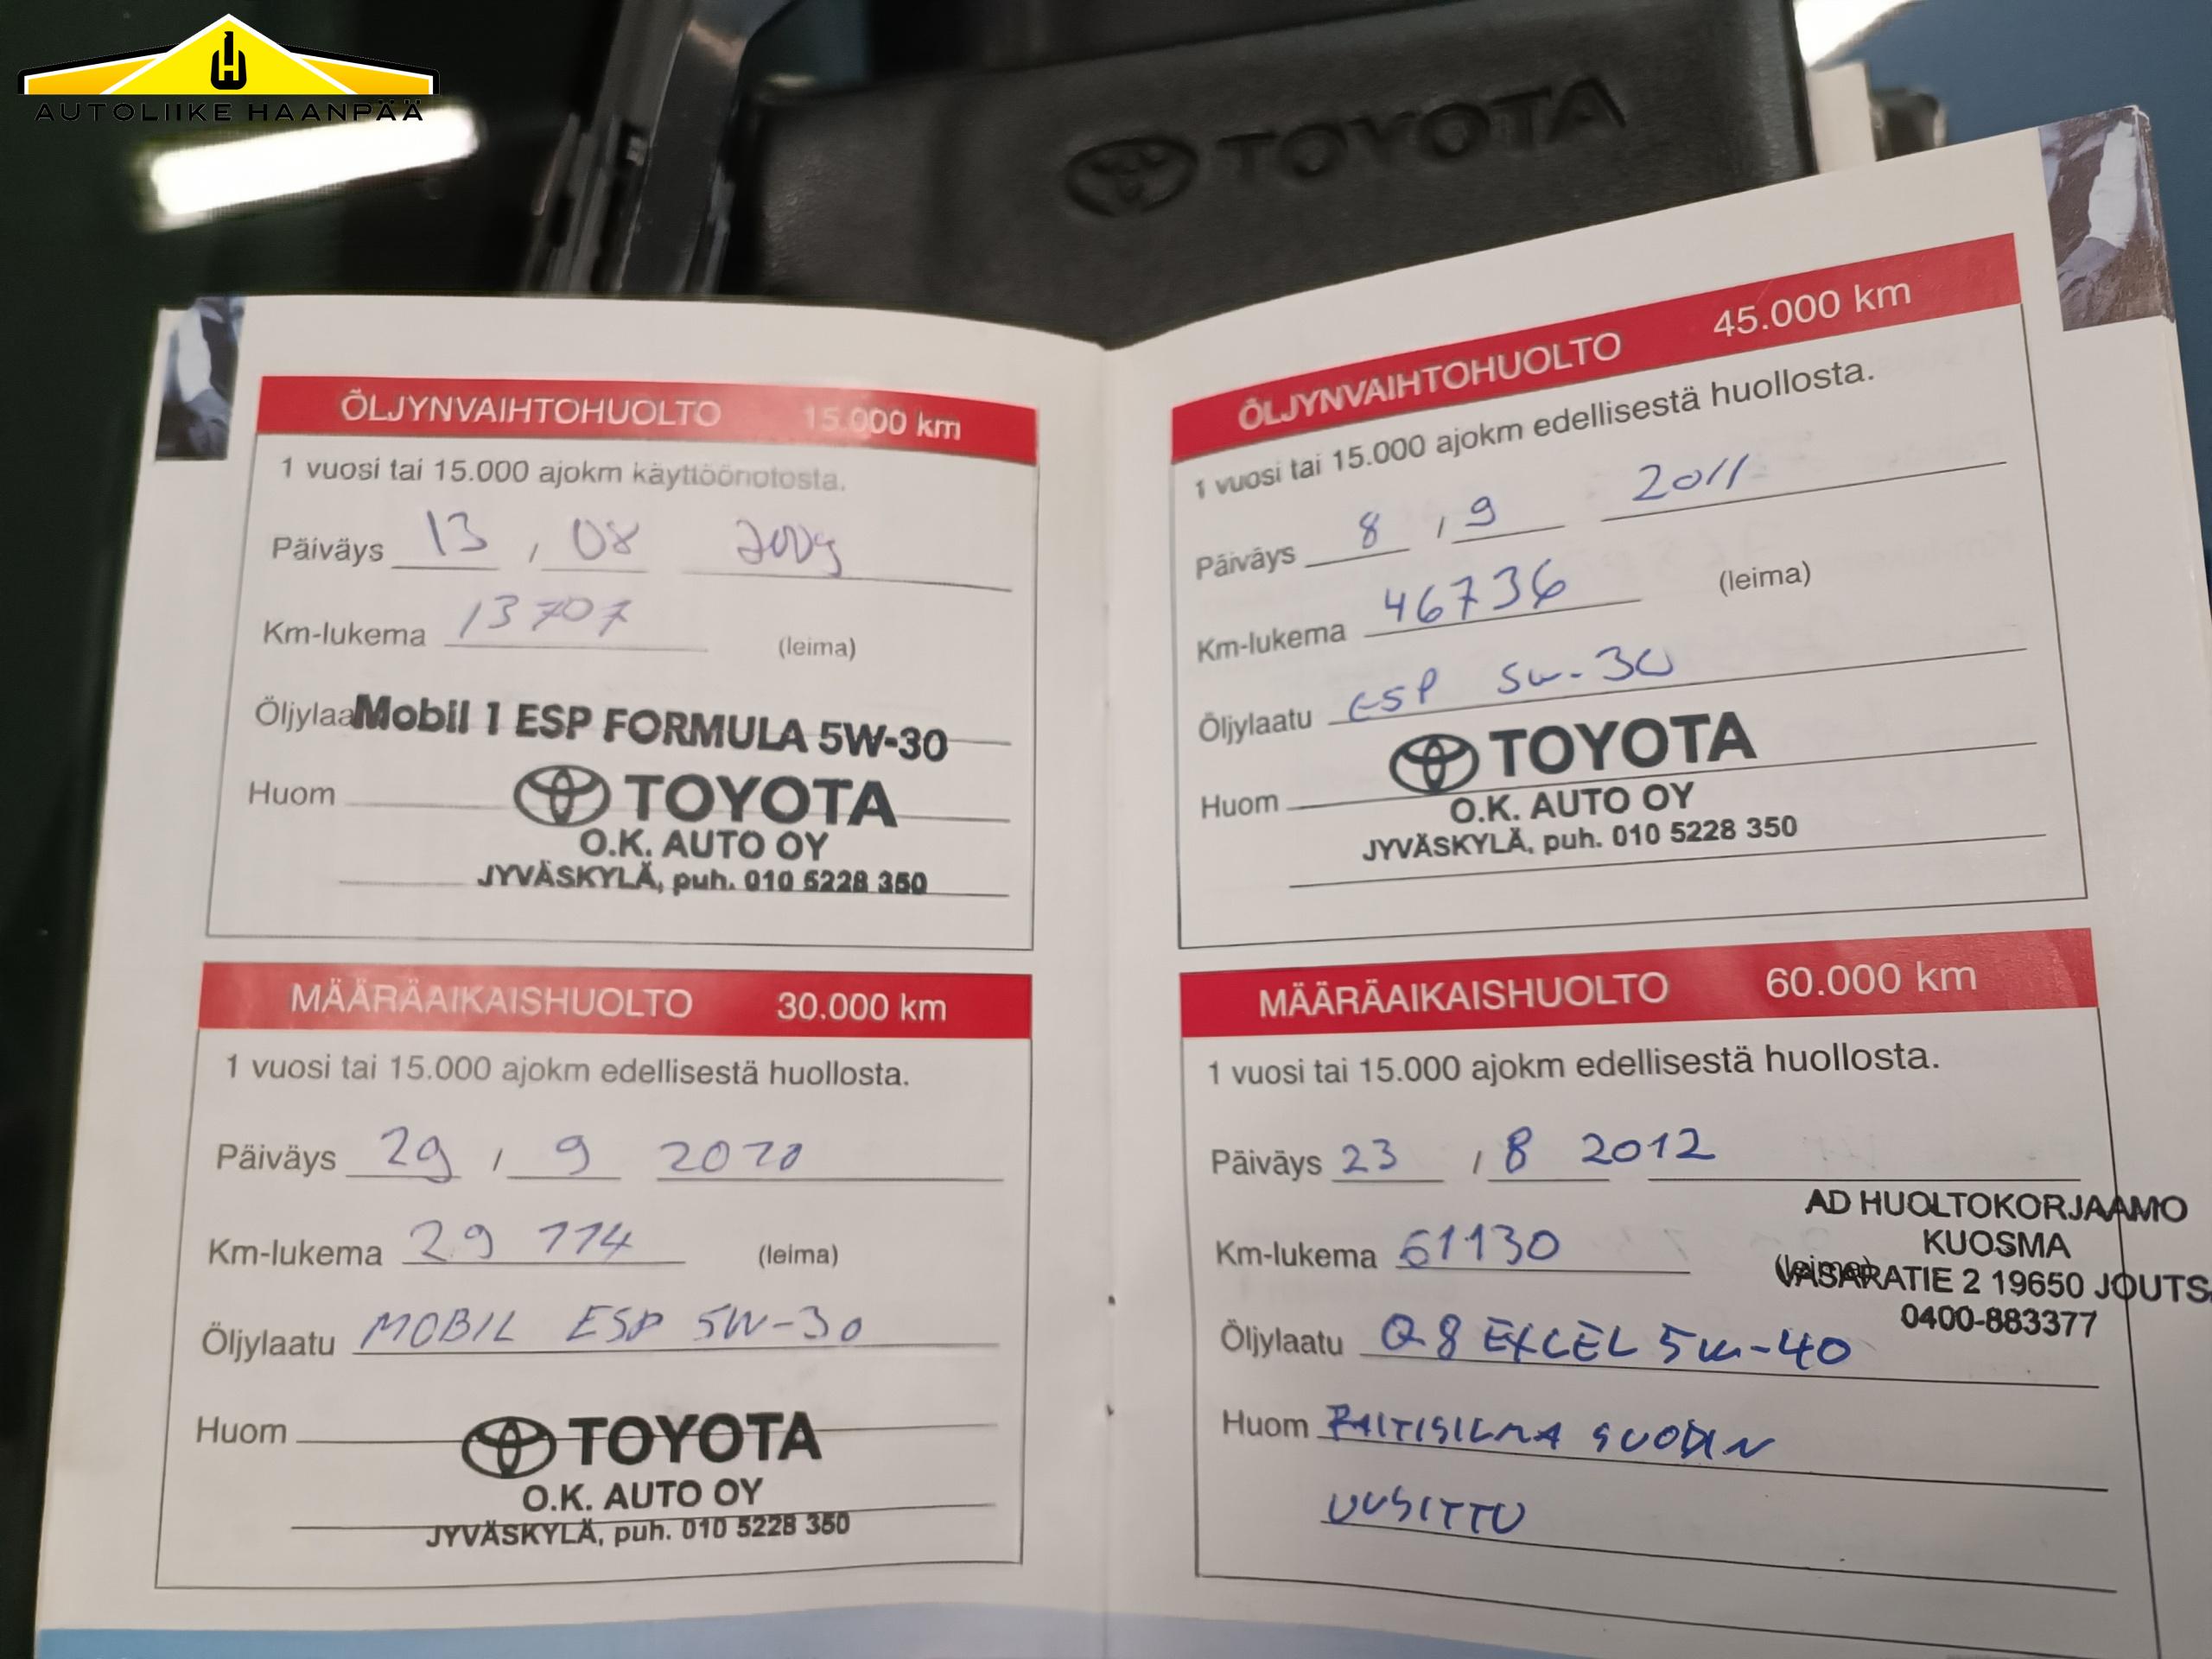 AUTOLIIKE HAANPÄÄ
TOYOTA
ÖLJYNVAIHTOHUOLTO 15.000 km
1 vuosi tai 15.000 ajokm käyttöönotosta.
Päiväys 13 / 08 2009
Km-lukema 13707 (leima)
Öljylaa Mobil 1 ESP FORMULA 5W-30
Huom TOYOTA
O.K. AUTO OY
JYVÄSKYLÄ, puh. 010 5228 350
MÄÄRÄAIKAISHUOLTO 30.000 km
1 vuosi tai 15.000 ajokm edellisestä huollosta.
Päiväys 29 / 9 2010
Km-lukema 29 114 (leima)
Öljylaatu MOBIL ESP 5W-30
Huom TOYOTA
O.K. AUTO OY
JYVÄSKYLÄ, puh. 010 5228 350
ÖLJYNVAIHTOHUOLTO 45.000 km
1 vuosi tai 15.000 ajokm edellisestä huollosta.
Päiväys 8 / 9 2011
Km-lukema 46736 (leima)
Öljylaatu ESP 5w-30
Huom TOYOTA
O.K. AUTO OY
JYVÄSKYLÄ, puh. 010 5228 350
MÄÄRÄAIKAISHUOLTO 60.000 km
1 vuosi tai 15.000 ajokm edellisestä huollosta.
Päiväys 23 / 8 2012
AD HUOLTOKORJAAMO
KUOSMA
Km-lukema 61130 (leima)
VASARATIE 2 19650 JOUTS
0400-883377
Öljylaatu Q8 EXCEL 5W-40
Huom RAITISILMA SUODIN
UUSITTU